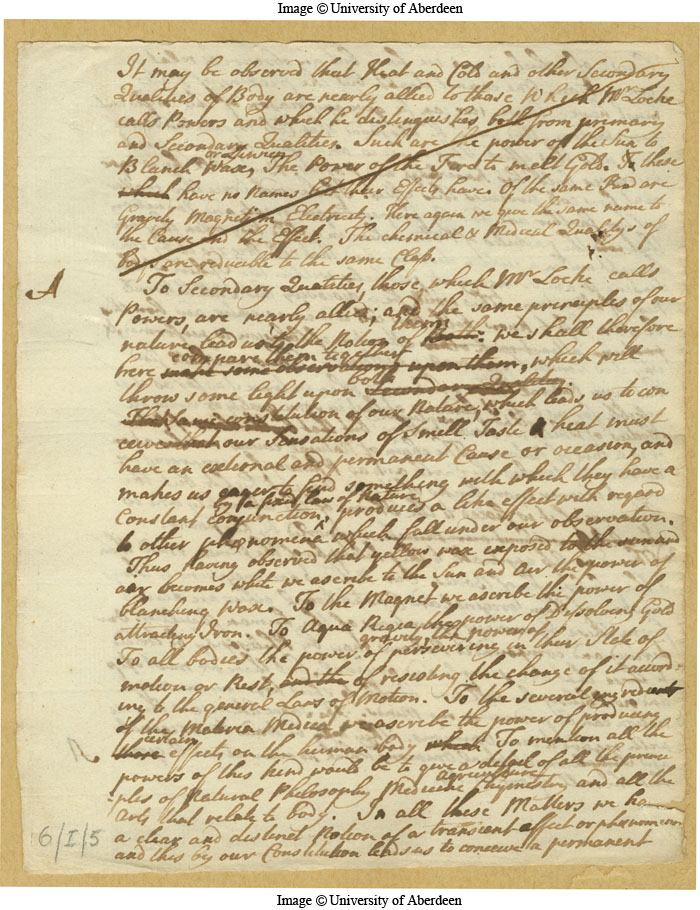 Image © University of Aberdeen
It may be observed that Heat and Cold and other Secondary
Qualities of Body are nearly allied to those Which Mr Locke
calls Powers and which he distinguishes both from primary
and Secondary Qualities. Such are the power of the Sun to
or Linnen
Blanch Wax, The Power of the to melt Gold. To these
which have no Names but their Effects have. Of the same kind are
Gravity Magnetism Electricity. Here again we give the same name to
the Cause and the Effect. The chemical & Medical Qualitys of
Body are reducible to the same Class.
A
To Secondary Qualities, those which Mr Locke calls
Powers, are nearly allied; and the same principles of our
nature lead us to the Notion of them. we shall therefore
compare them together
here make some observations upon them, which will
both
throw some light upon Secondary Quality.
The same constitution of our Nature, which leads us to con
ceive that our Sensations of Smell Taste & heat must
have an external and permanent Cause or occasion, and
makes us eager to find something with which they have a
by a fixed law of Nature
Constant Conjunction, produces a like effect with regard
to other phænomena which fall under our observation.
Thus having observed that yellow wax exposed to the sun and
air becomes white we ascribe to the Sun and air the power of
blanching Wax. To the Magnet we ascribe the power of
attracting Iron. To Aqua Regia, the power of Dissolving Gold
gravity, the power of
To all bodies the power of persevering in their State of
motion or Rest, and the of resisting the change of it accord-
ing to the general Laws of Motion. To the several ingredients
of the Materia Medica we ascribe the power of producing
certain
those effects on the human body which. To mention all the
powers of this kind would be to give a detail of all the princi
agriculture
ples of Natural Philosophy Medicine Chymestry, and all the
arts that relate to body. In all these Matters we have
a clear and distinct Notion of a transient effect or phænomenon
and this by our Constitution leads us to conceive a permanent
6/I/5
Image © University of Aberdeen